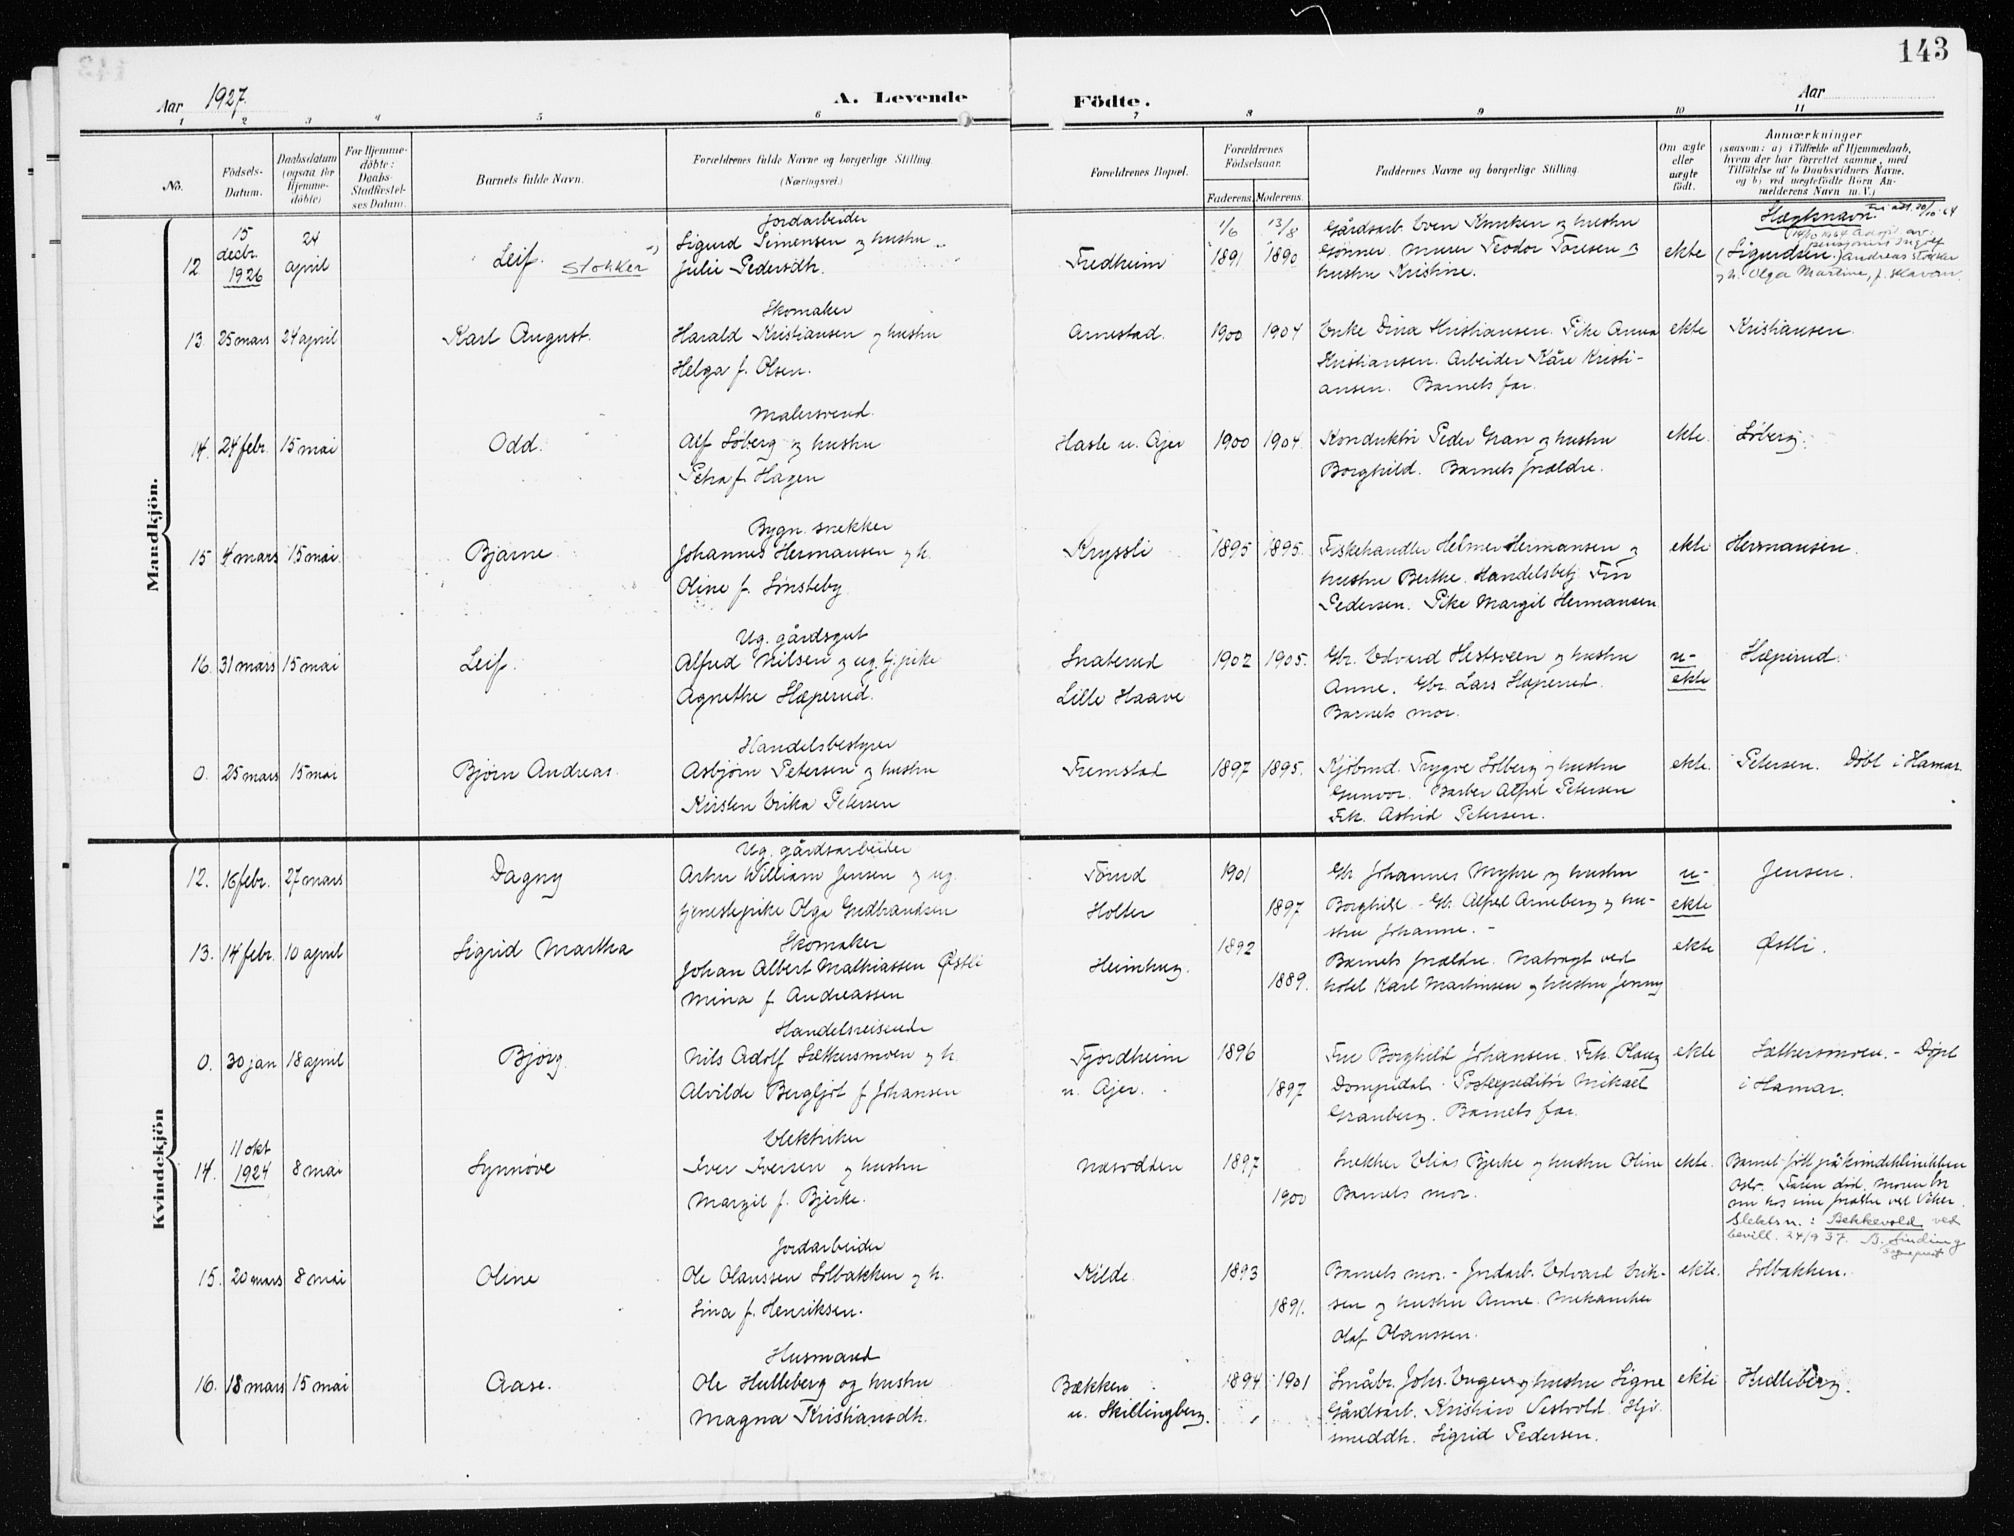 143
Aar 1927.
A. Levende Födte.
Aar
1 2 3 4 5 6 7 8 9 10 11
No.
Födsels-Datum.
Daabsdatum (ogsaa for Hjemme-döbte)
For Hjemme-döbte: Daabs-Stadfæstel-ses Datum.
Barnets fulde Navn.
Forældrenes fulde Navne og borgerlige Stilling (Næringsvei.)
Forældrenes Bopæl.
Forældrenes Födselsaar.
Faderens. Moderens.
Faddernes Navne og borgerlige Stilling.
Om ægte eller uægte födt.
Anmærkninger
(saasom: a) i Tilfælde af Hjemmedaab,
hvem der har forrettet samme, med
Tilföielse af to Daabsvidners Navne,
og b) ved uægtefödte Börn An-
melderens Navn m. V.)
Mandkjön.
Jordarbeider
12 15 decbr. 1926 24 april Leif. Stokker
Sigurd Simensen og hustru
Julie Pedersdtr.
Fredheim 1/6 1891 13/8 1890
Gårdsarb. Even Kunken og hustru
Gunner. Murer Teodor Toresen og
hustru Kristine.
ekte
Slægtsnavn
(Sigurdsen.) Andreas Stokker
og h. Olga Martine, f. Skavern.
Skomaker
13. 25 mars 24 april Karl August.
Harald Kristiansen og hustru
Helga f. Olsen.
Arnestad. 1900 1904
Enke Dina Kristiansen. Pike Anna
Kristiansen. Arbeider Kåre Kristi-
ansen. Barnets far.
ekte Kristiansen.
Malersvend.
14. 24 febr. 15 mai Odd.
Alf Löberg og hustru
Petra f. Hagen
Hasle u. Ajer 1900 1904.
Konduktör Peder Gran og hustru
Borghild. Barnets forældre.
ekte. Löberg.
Bygn. snekker
15 4 mars 15 mai. Bjarne
Johannes Hermansen og h.
Oline f. Linsteby
Kryssli 1895 1895.
Fiskehandler Helmer Hermansen og
hustru Berthe. Handelsbetj. Finn
Pedersen. Pike Margit Hermansen
ekte Hermansen.
Ug. gårdsgut
16. 31 mars 15 mai Leif.
Alfred Nilsen og ug. tj.pike
Agnethe Hæperud.
Snaterud
Lille Haave
1902 1905.
Gbr. Edvard Hestsveen og hustru
Anne. Gbr. Lars Hæperud.
Barnets mor.
u-
ekte
Hæperud.
Handelsbestyrer
0. 25 mars 15 mai Bjørn Andreas.
Asbjørn Petersen og hustru
Kirsten Erika Petersen
Fremstad 1897 1895.
Kjöbmd. Trygve Solberg og hustru
Gunvor. Barber Alfred Petersen
Frk. Astrid Petersen.
ekte. Petersen. Döbt i Hamar.
Kvindekjön
Ug. gårdsarbeider
12. 16 febr. 27 mars Dagny
Artur William Jensen og ug.
tjenestepike Olga Gudbrandsen
Tomd
Holter
1901 1897
Gbr Johannes Myhre og hustru
Borghild - Gb. Alfred Arneberg og hu-
stru Johanne. -
u-
ekte
Jensen.
Skomaker
13. 14 febr. 10 april Sigrid Martha
Johan Albert Mathiassen Østli
Mina f. Andreassen
Heimhug. 1892 1889.
Barnets forældre. Natvagt ved
hotel Karl Martinsen og hustru Jenny
ekte Østli.
Handelsreisende
0. 30 jan 18 april Bjørg.
Nils Adolf Sæthersmoen og h.
Alvilde Bergljot f Johansen
Fjordheim
u. Ajer.
1896 1897
Fru Borghild Johansen. Frk. Olaug
Dompidal. Postexpeditör Mikael
Granberg. Barnets far.
ekte Sæthersmoen. - Döpt
i Hamar.
Elektriker
14. 11 okt 1924 8 mai Synnöve
Iver Iversen og hustru
Margit f. Bjerke.
Næsodden 1897 1900
Snekker Elias Bjerke og hustru Oline
Barnets mor.
ekte. Barnet født på kvindeklinikken
Oslo. Faren död. Moren bor
nu hos sine forældre ved Viker.
Slektsn.: Bekkevold ved
bevill. 24/9 37. B. Sinding
sogneprest
Jordarbeider
15. 20 mars 8 mai Oline
Ole Olaussen Solbakken og h.
Lina f. Henriksen.
Kilde. 1893 1891.
Barnets mor. - Jordarb. Edvard Erik-
sen og hustru Anne. Mekaniker
Olaf Olaussen.
ekte. Solbakken.
Husmand
16. 18 mars 15 mai Aase.
Ole Hulleberg og hustru
Magna Kristiansdtr.
Bækken
u. Skillingberg.
1894 1901
Småbr. Johs. Enger og hustru Signe
Gårdsarb. Kristian Vestvold. Hjö
smeddtr. Sigrid Pedersen.
ekte Hulleberg.